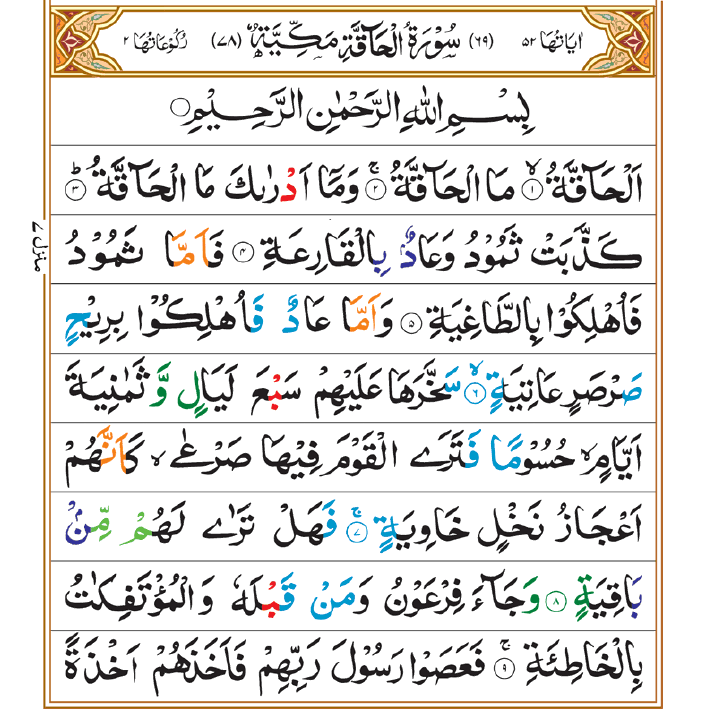 اٰيَاتُهَا ٥٢ (٦٩) سُوْرَةُ الْحَآقَّةِ مَكِّيَّةٌ (٧٨) رُكُوْعَاتُهَا ٢
بِسْمِ اللّٰهِ الرَّحْمٰنِ الرَّحِيْمِ ۝
اَلْحَآقَّةُ ۙ﴿١﴾ مَا الْحَآقَّةُ ۚ﴿٢﴾ وَمَاۤ اَدْرٰىكَ مَا الْحَآقَّةُ ؕ﴿٣﴾
كَذَّبَتْ ثَمُوْدُ وَعَادٌۢ بِالْقَارِعَةِ ﴿٤﴾ فَاَمَّا ثَمُوْدُ
منزل ٧
فَاُهْلِكُوْا بِالطَّاغِيَةِ ﴿٥﴾ وَاَمَّا عَادٌ فَاُهْلِكُوْا بِرِيْحٍ
صَرْصَرٍ عَاتِيَةٍ ۙ﴿٦﴾ سَخَّرَهَا عَلَيْهِمْ سَبْعَ لَيَالٍ وَّ ثَمٰنِيَةَ
اَيَّامٍ ۙ حُسُوْمًا فَتَرَى الْقَوْمَ فِيْهَا صَرْعٰى ۙ كَاَنَّهُمْ
اَعْجَازُ نَخْلٍ خَاوِيَةٍ ۚ﴿٧﴾ فَهَلْ تَرٰى لَهُمْ مِّنْۢ
بَاقِيَةٍ ﴿٨﴾ وَجَآءَ فِرْعَوْنُ وَمَنْ قَبْلَهٗ وَالْمُؤْتَفِكٰتُ
بِالْخَاطِئَةِ ۚ﴿٩﴾ فَعَصَوْا رَسُوْلَ رَبِّهِمْ فَاَخَذَهُمْ اَخْذَةً